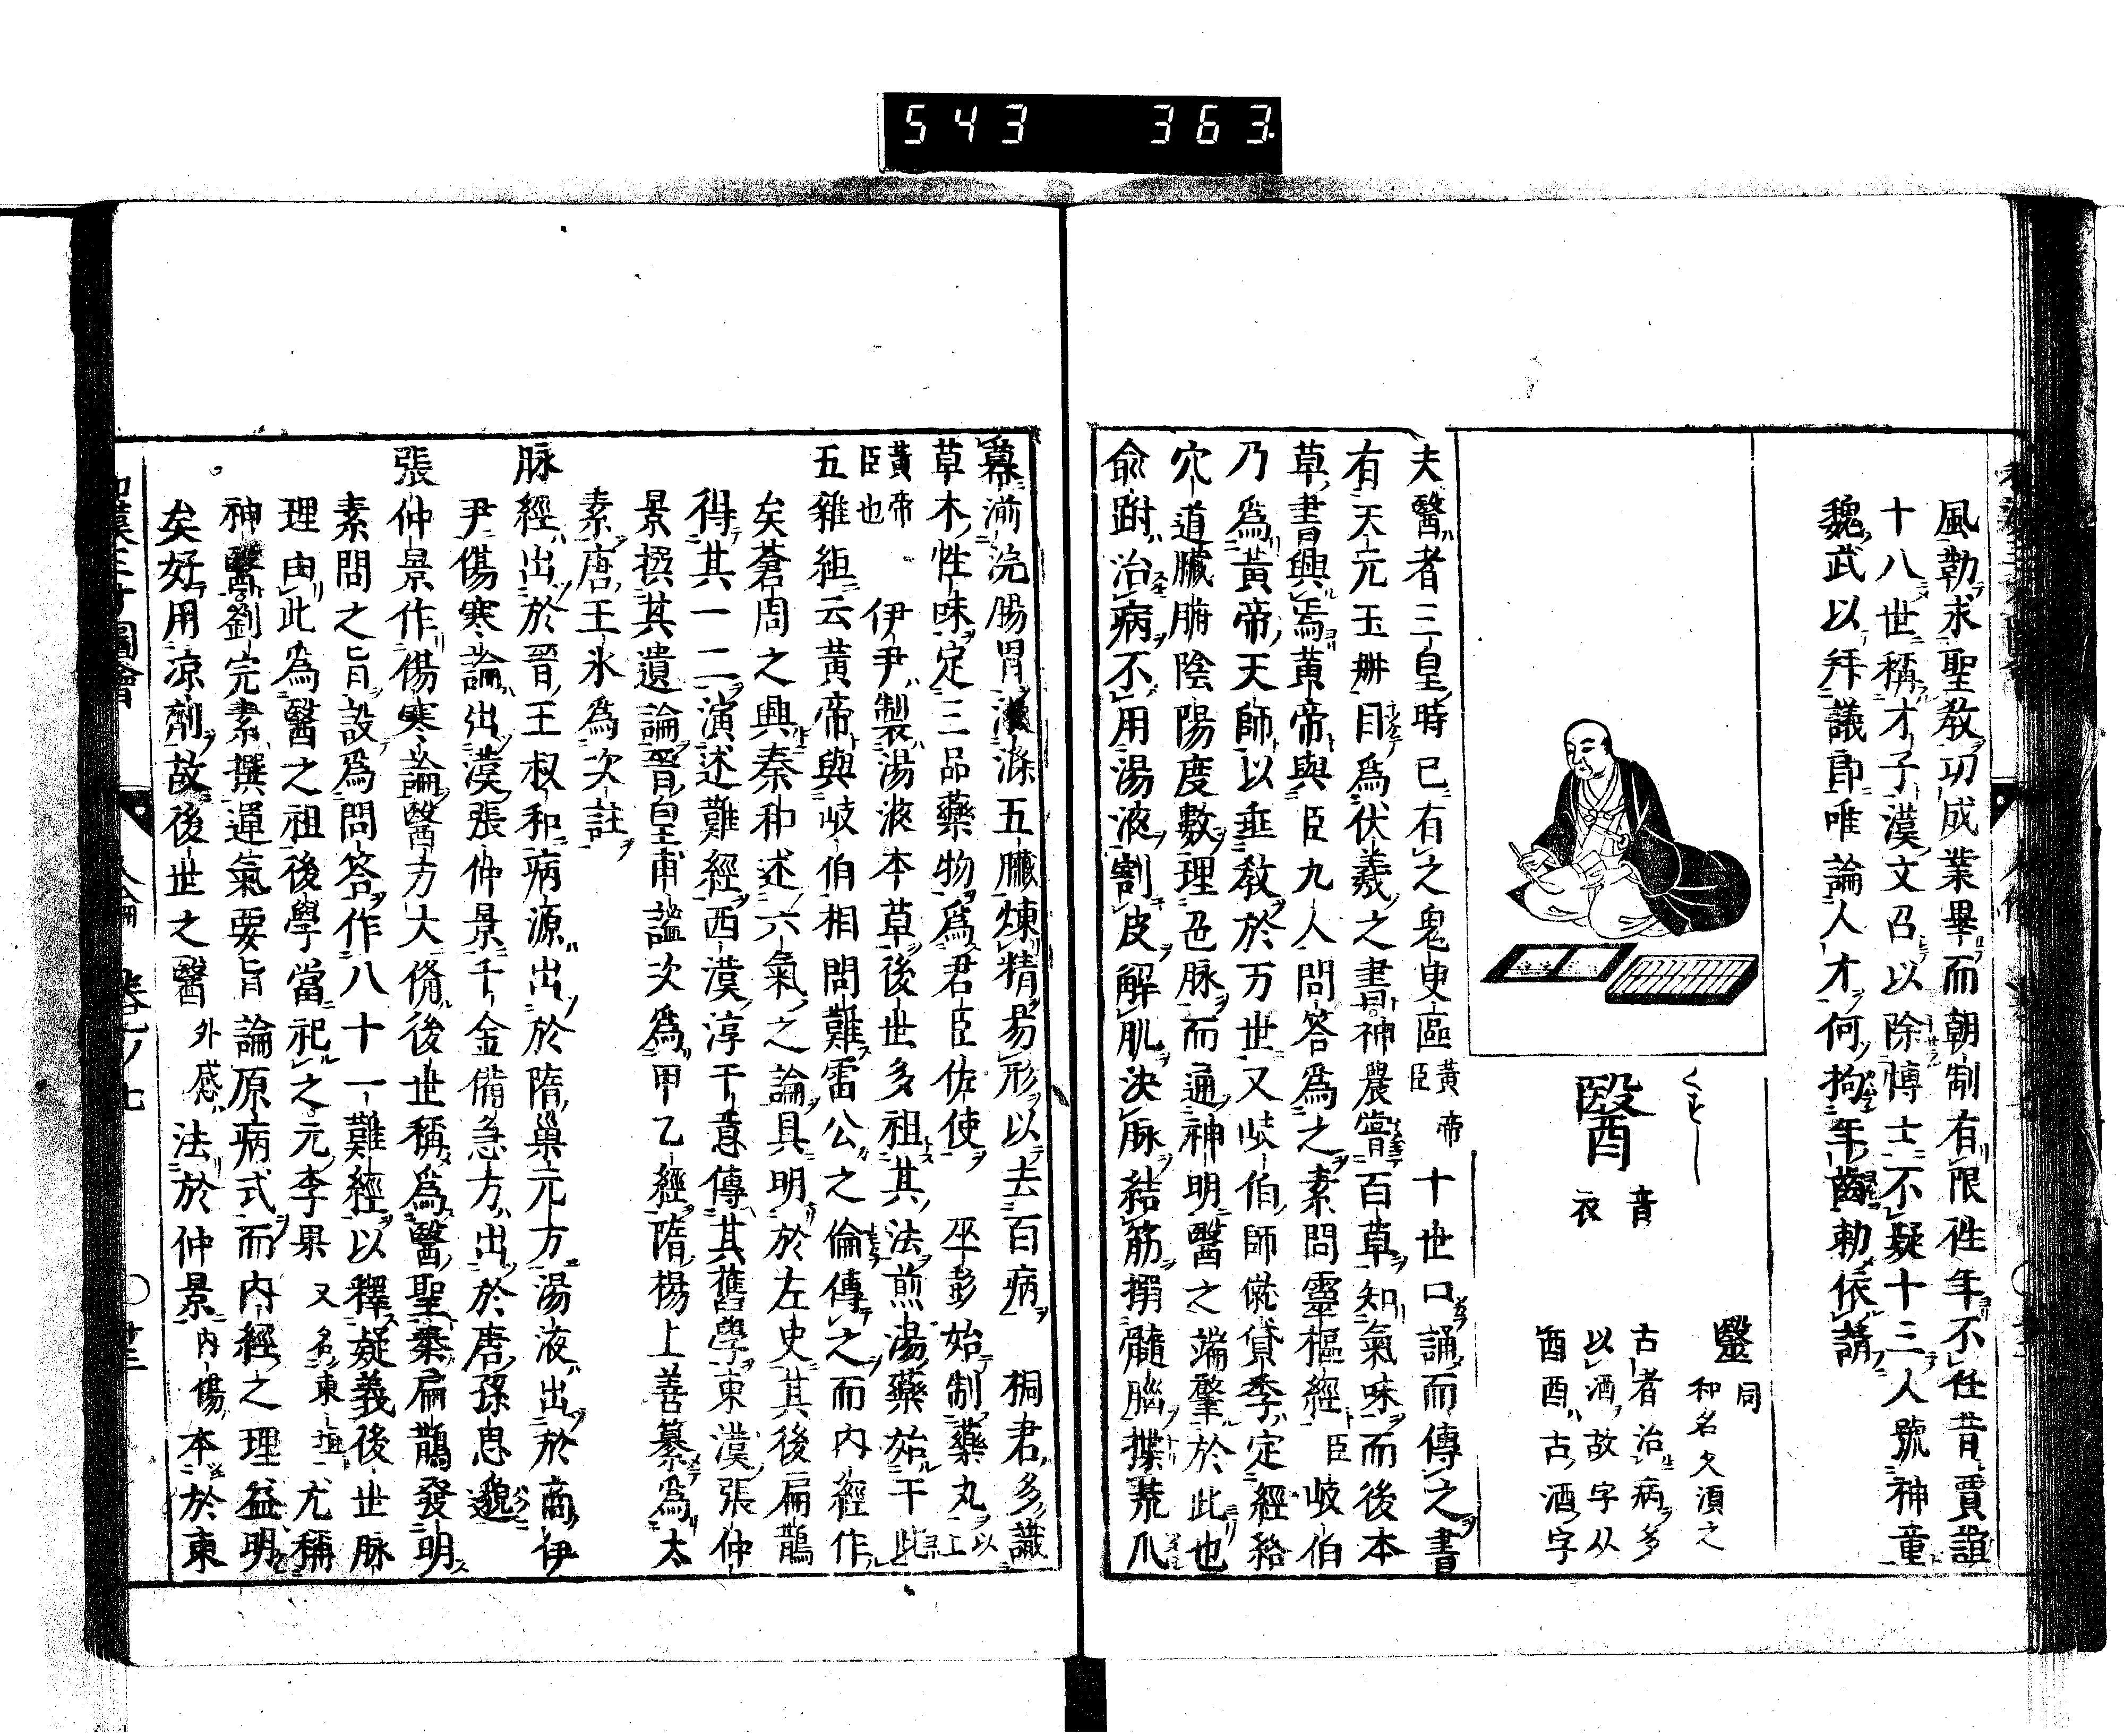 543 363
風勒求聖教功成業畢而朝制有限徃年不任昔賈誼
十八世稱才子漢文召以除博士不疑十三人號神童
魏武以拜議郎唯論人才何拘年齒勅依請
くすし
醫
音衣
毉同
和名久須之
古者治病多
以酒故字从
酉酉古酒字
夫醫者三皇時已有之鬼臾區黃帝臣十世口誦而傳之書
有天元玉冊目爲伏羲之書神農嘗百草知氣味而後本
草書興焉黃帝與臣九人問答爲之素問靈樞經臣岐伯
乃爲黃帝天師以垂教於万世又岐伯師僦貸季定經絡
穴道臟腑陰陽度數理色脉而通神明醫之端肇於此也
俞跗治病不用湯液割皮解肌決脉結筋搦髓腦揲荒爪
幕湔浣腸胃漱滌五臟煉精易形以去百病 桐君多識
草木性味定三品藥物爲君臣佐使 巫彭始制藥丸以上
黃帝臣也 伊尹製湯液本草後世多祖其法煎湯藥始于此
五雜組云黃帝與岐伯相問難雷公之倫傳之而內經作
矣蒼周之興秦和述六氣之論具明於左史其後扁鵲
得其一二演述難經西漢淳于意傳其舊學東漢張仲
景撰其遺論晉皇甫謐次爲甲乙經隋楊上善纂爲太
素唐王氷為次註
脉經出於晉王叔和病源出於隋巢元方湯液出於商伊
尹傷寒論出漢張仲景千金備急方出於唐孫思邈
張仲景作傷寒論醫方大備後世稱爲醫聖秦扁鵲發明
素問之旨設為問答作八十一難經以釋疑義後世脉
理由此為醫之祖後學當祀之元李杲又名東垣尤稱
神醫劉完素撰運氣要旨論原病式而內經之理益明
矣好用凉劑故後世之醫外感法於仲景內傷本於東
和漢三才圖會 人倫 卷ノ七